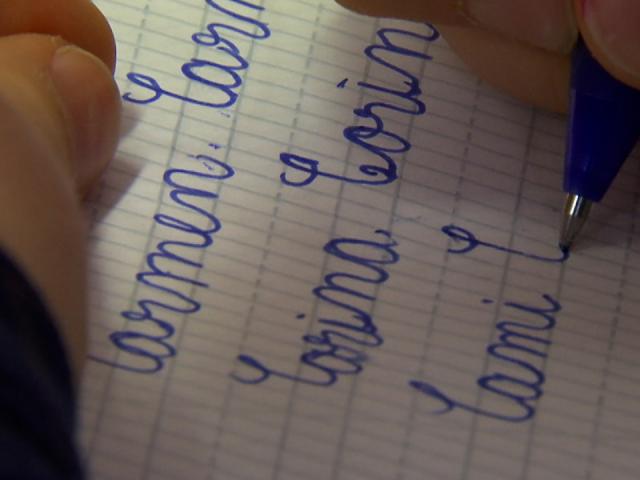 Carmen. Carm
Corina. Corin
Cami C